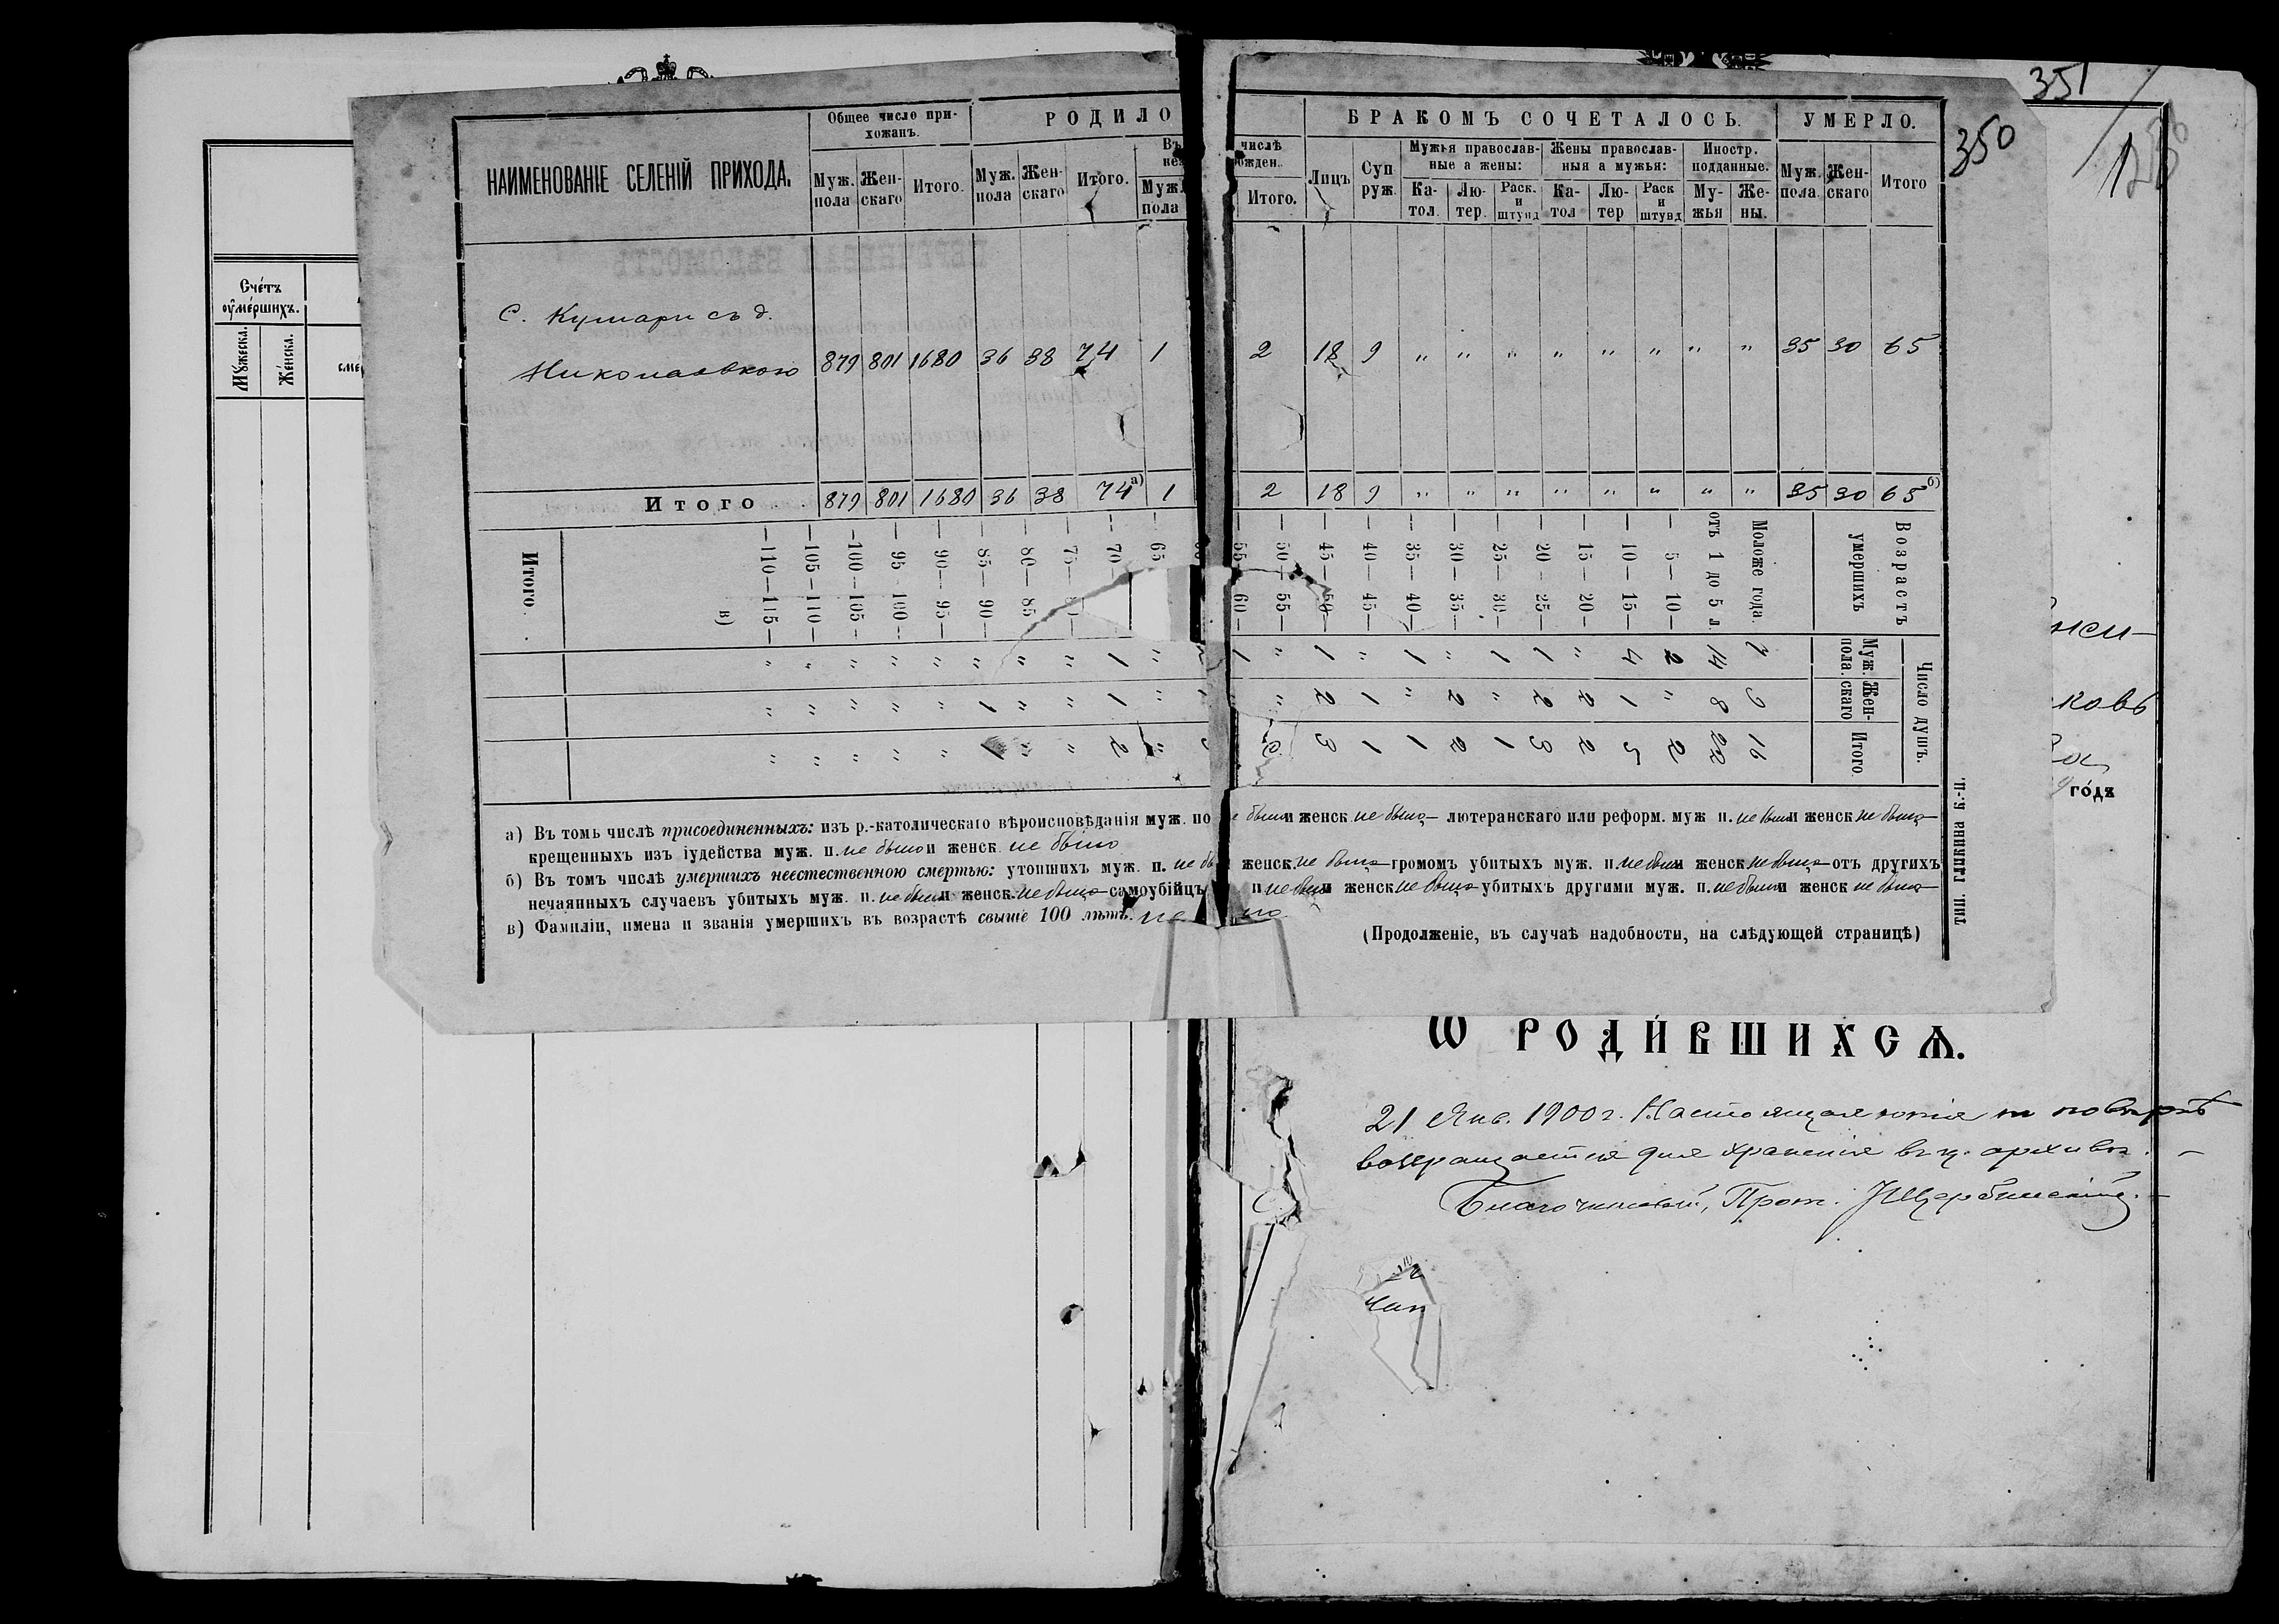 351
350
1
Счéтъ
оумéршихъ.
Мужеска.
Женска.
НАИМЕНОВАНІЕ СЕЛЕНІЙ ПРИХОДА.
Общее число при-
хожанъ.
Муж. пола
Жен- скаго
Итого.
РОДИЛО
Муж. пола
Жен- скаго
Итого.
Муж. пола
числѣ
Итого.
БРАКОМЪ СОЧЕТАЛОСЬ.
Лицъ
Суп руж.
Мужья православ-
ные а жены:
Ка- тол.
Лю- тер.
Раск. и штунд
Жены православ-
ныя а мужья:
Ка- тол
Лю- тер
Раск и штунд
Иностр.
подданные.
Му- жья
Же- ны.
УМЕРЛО.
Муж. пола.
Жен- скаго
Итого
С. Кумари съ д.
Николаевкою 879 801 1680 36 38 74 1 2 18 9 " " " " " " " " 35 30 65
Итого 879 801 1680 36 38 74 а) 1 2 18 9 " " " " " " " " 35 30 65 б)
Возрастъ
умершихъ
Число душъ.
Муж. пола.
Жен- скаго
Итого.
Моложе года 7 9 16
отъ 1 до 5 л. 14 8 22
— 5 — 10 — 2 " 2
— 10 — 15 — 4 1 5
— 15 — 20 — " 2 2
— 20 — 25 — 1 2 3
— 25 — 30 — 1 " 1
— 30 — 35 — " 2 2
— 35 — 40 — 1 " 1
— 40 — 45 — " 1 1
— 45 — 50 — 1 2 3
— 50 — 55 — " "
— 55 — 60 — 1
— 65 — " " "
— 70 — 1 1 2
— 75 — " " "
— 80 — 85 " " "
— 85 — 90 — " 1 1
— 90 — 95 — " " "
— 95 — 100 — " " "
— 100 — 105 — " " "
— 105 — 110 — " " "
— 110 — 115 — " " "
в)
Итого.
а) Въ томъ числѣ присоединенныхъ: изъ р.-католическаго вѣроисповѣданія муж. по было и женск. не было — лютеранскаго или реформ. муж п. не было и женск не было —
крещенныхъ изъ іудейства муж. п. не было и женск. не было
б) Въ томъ числѣ умершихъ неестественною смертью: утопшихъ муж. п. не женск. не было — громомъ убитыхъ муж. п. не было и женск. не было — отъ другихъ
нечаянныхъ случаевъ убитыхъ муж. п. не было и женск. не было — самоубійцъ п не было и женск не было — убитыхъ другими муж. п. не было и женск не было —
в) Фамиліи, имена и званія умершихъ въ возрастѣ свыше 100 лѣтъ.
(Продолженіе, въ случаѣ надобности, на слѣдующей страницѣ)
ТИП. ГЛИКИНА К.-П.
годъ
Ѡ РОДИ́ВШИХСѦ.
21 Янв. 1900 г. Настоящая копія по повѣркѣ
возвращается для храненія въ ц. архивъ. —
Благочинный, Прот. Щербинскій. —